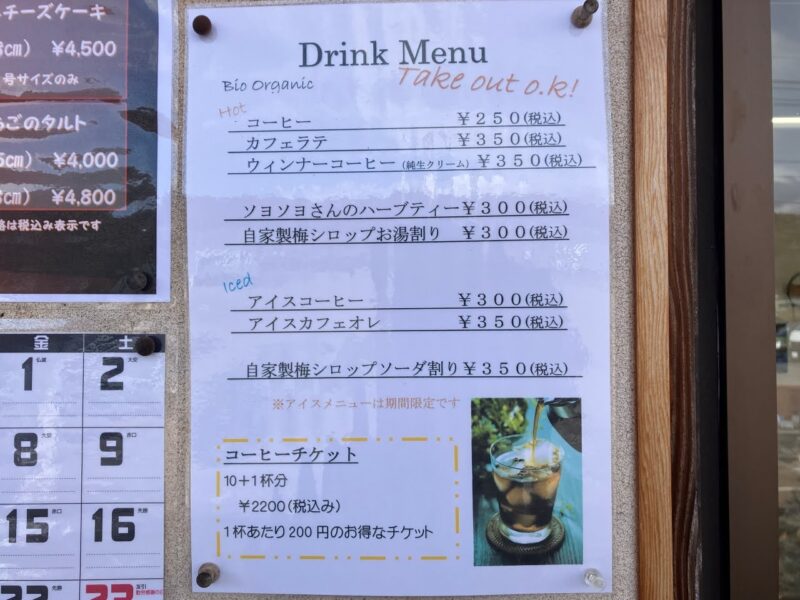 チーズケーキ
cm) ¥4,500
号サイズのみ
ごのタルト
cm) ¥4,000
cm) ¥4,800
格は税込み表示です
Drink Menu
Take out o.k!
Bio Organic
Hot
コーヒー ¥250(税込)
カフェラテ ¥350(税込)
ウィンナーコーヒー(純生クリーム) ¥350(税込)
ソヨソヨさんのハーブティー ¥300(税込)
自家製梅シロップお湯割り ¥300(税込)
Iced
アイスコーヒー ¥300(税込)
アイスカフェオレ ¥350(税込)
自家製梅シロップソーダ割り ¥350(税込)
※アイスメニューは期間限定です
コーヒーチケット
10+1杯分
¥2200(税込み)
1杯あたり200円のお得なチケット
金 土
1 仏滅 2 大安
8 先勝 9 赤口
15 赤口 16 先勝
22 先勝 23 友引